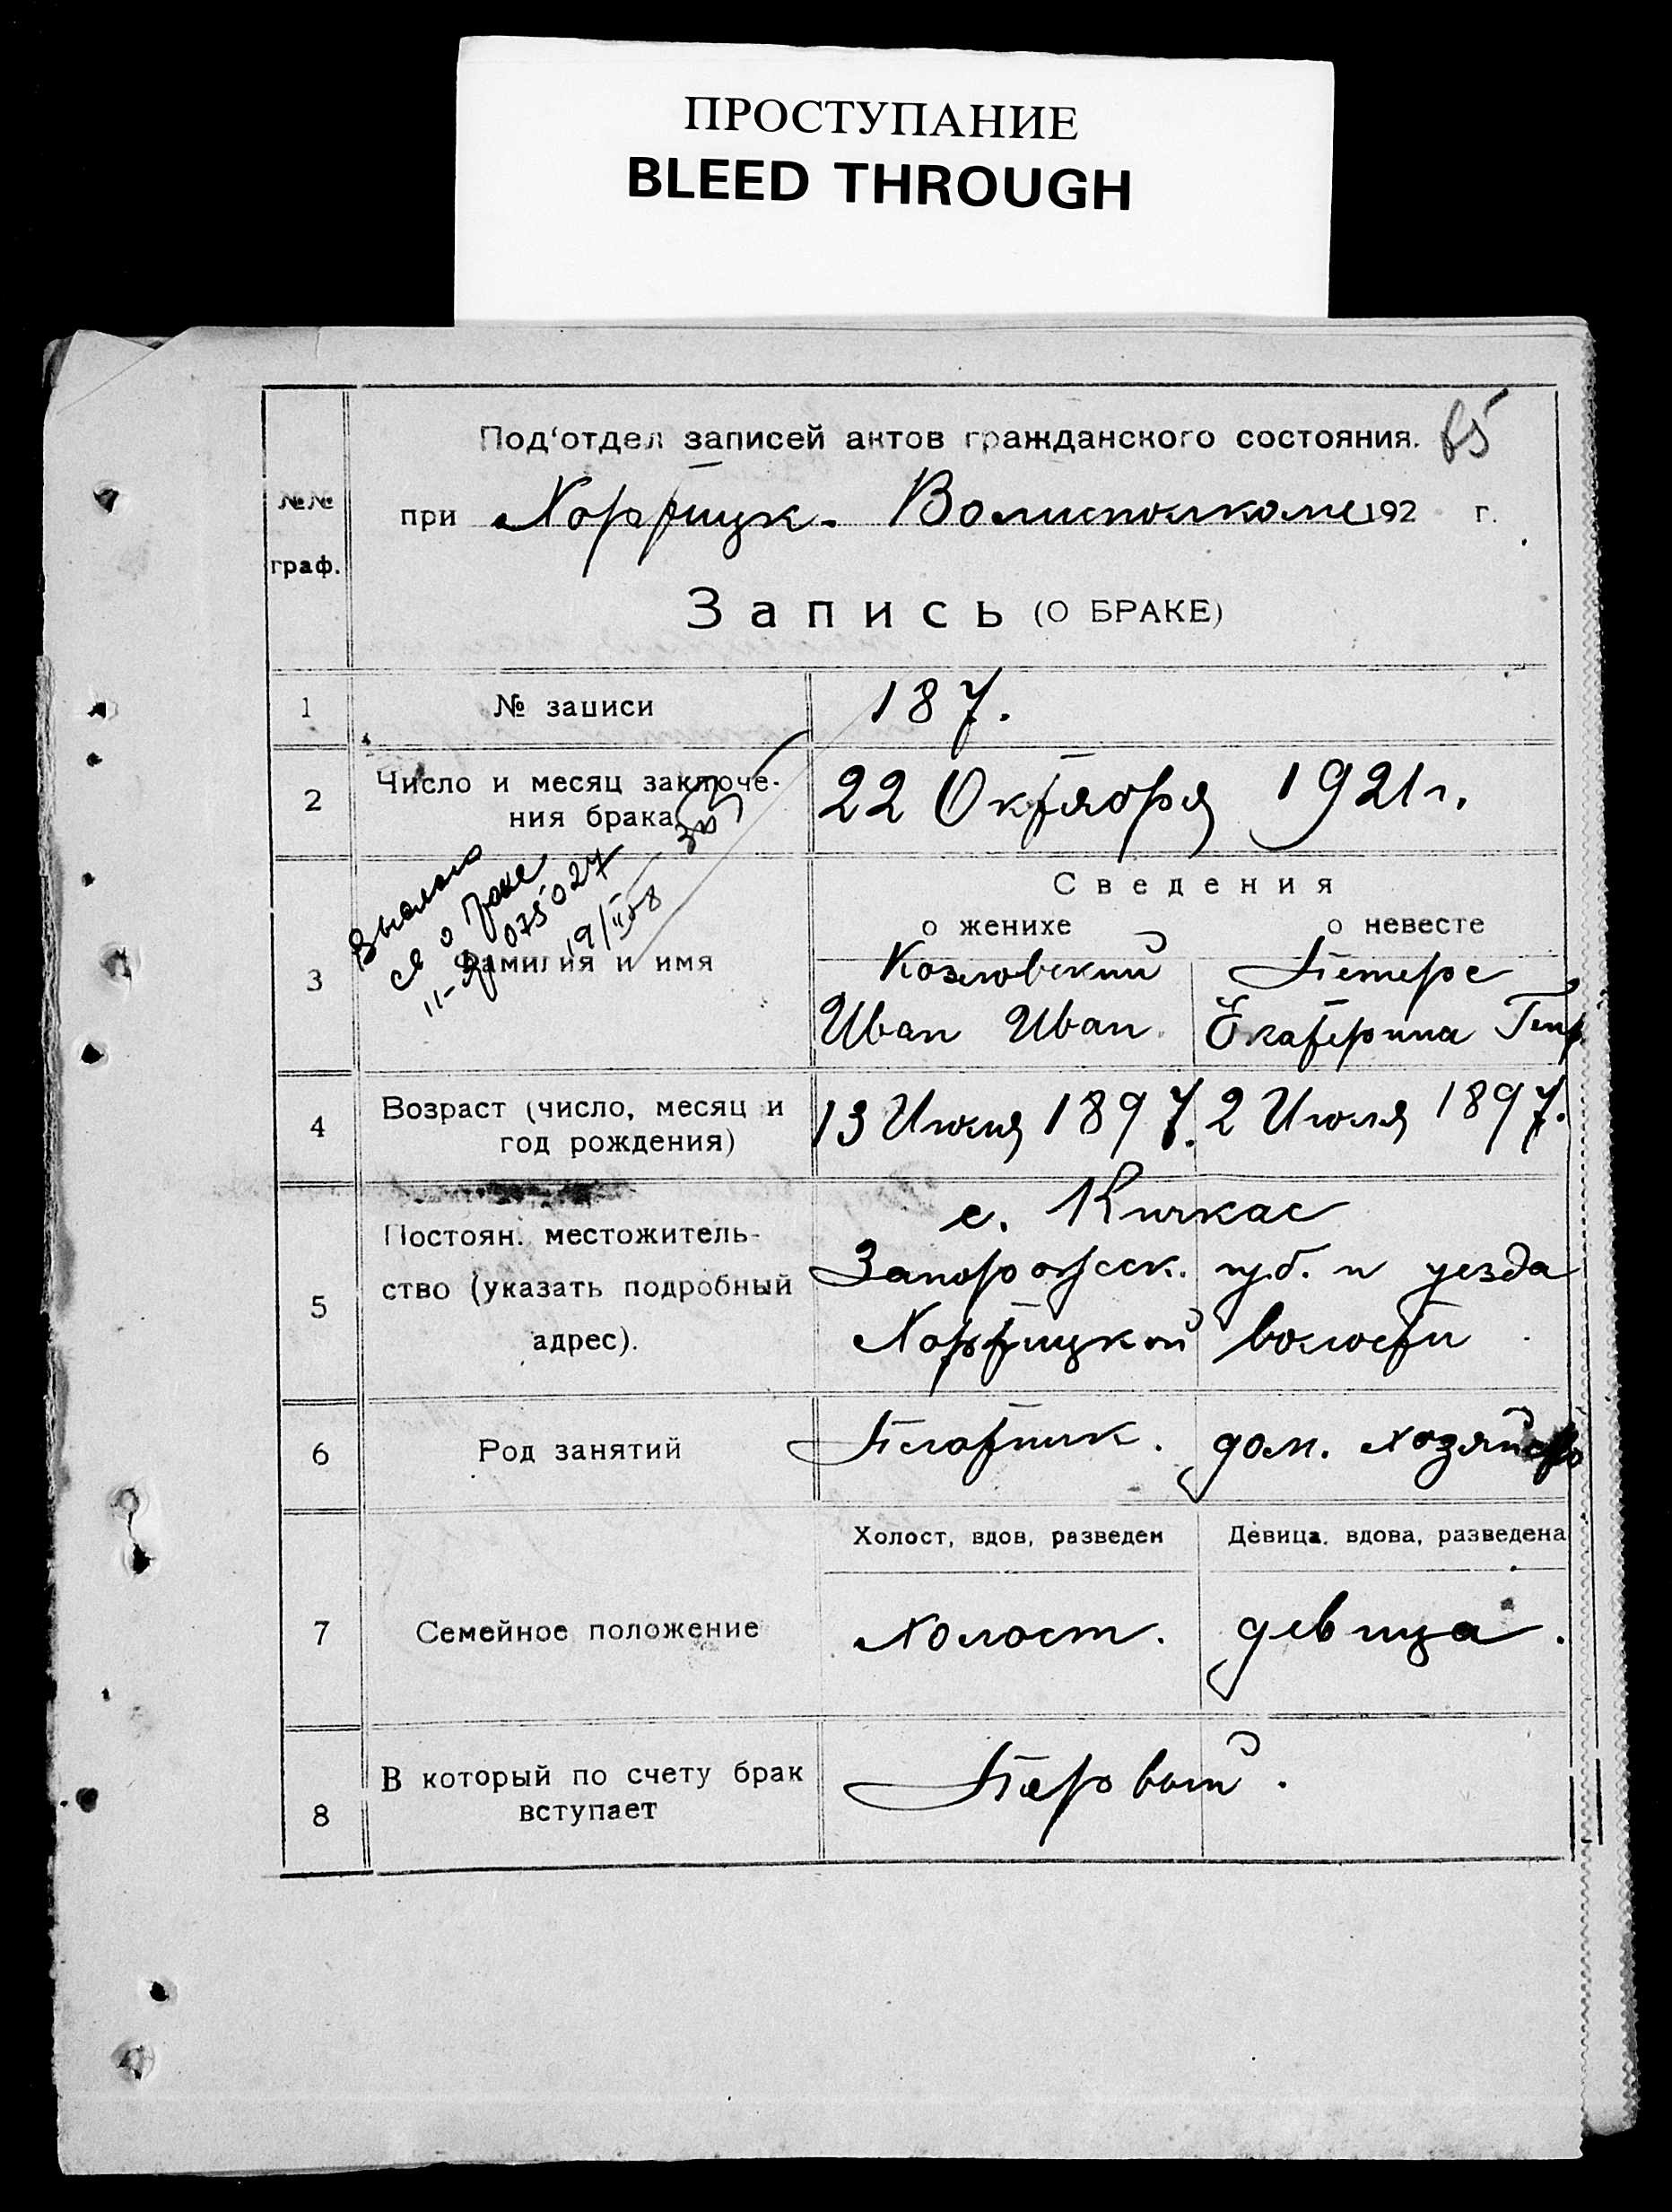 ПРОСТУПАНИЕ
BLEED THROUGH
Под'отдел записей актов гражданского состояния. 65
№№ граф.
при Хортицк. Волисполкоме 192 г.
Запись (О БРАКЕ)
1 № записи 187.
2 Число и месяц заключе-
ния брака 22 Октября 1921 г.
Сведения
о женихе о невесте
3 Фамилия и имя Козловский Петерс
Иван Иван. Екатерина Генр.
св о браке
II-
075027
19/II 58
4 Возраст (число, месяц и
год рождения) 13 Июня 1897. 2 Июля 1897.
5 Постоян. местожитель-
ство (указать подробный
адрес).
с. Кичкас
Запорожск. губ. и уезда
Хортицкой волости
6 Род занятий Плотник. дом. хозяйство
Холост, вдов, разведен Девица, вдова, разведена
7 Семейное положение Холост. девица.
8 В который по счету брак
вступает Первый.